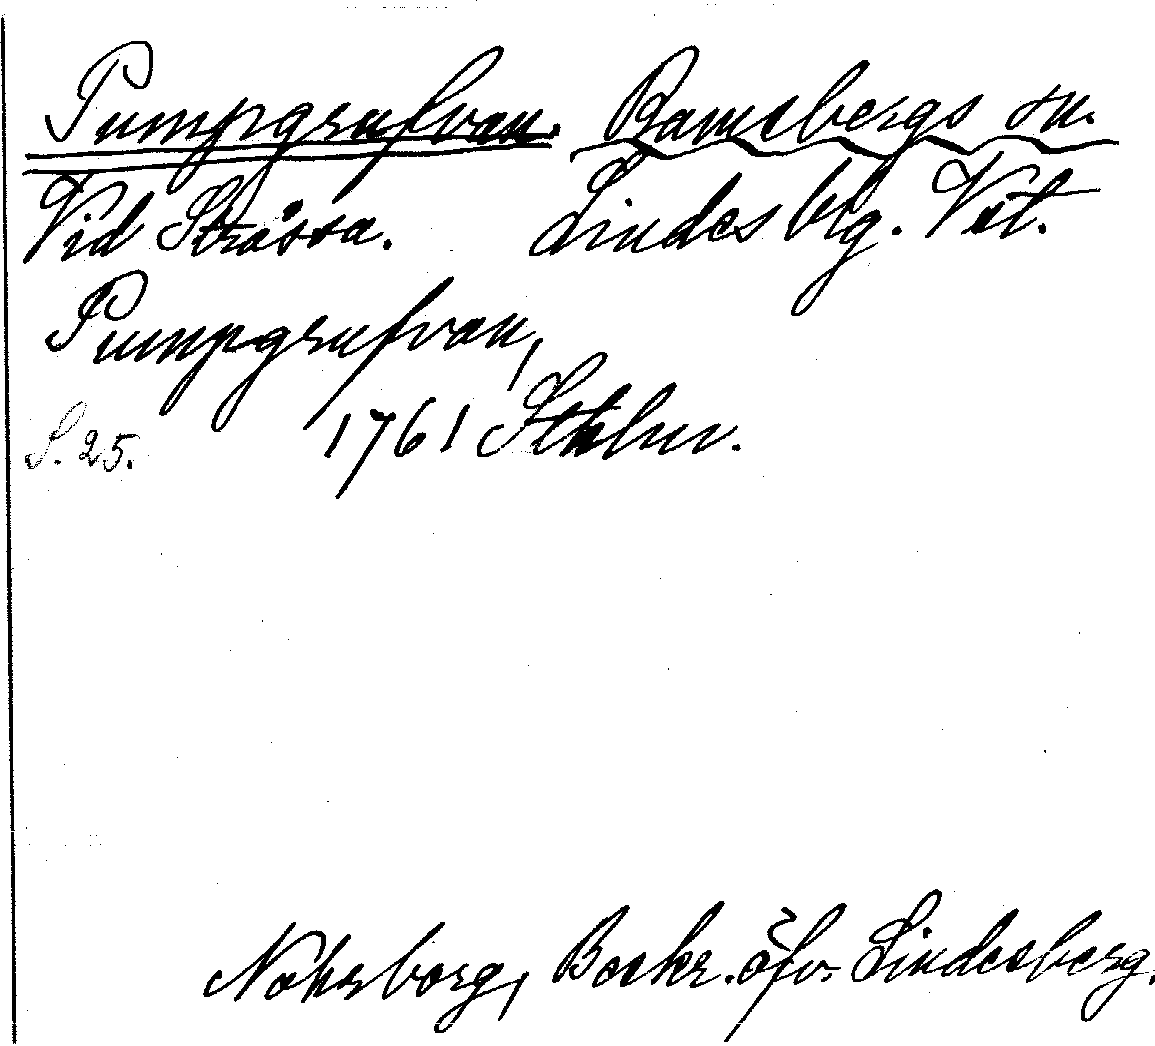 Pumpgrufvan. Ramsbergs sn.
Vid Stråssa. Lindes blg. Vstl.
Pumpgrufvan,
S. 25. 1761 Sthlm.
Nohrborg, Beskr. öfv. Lindesberg.